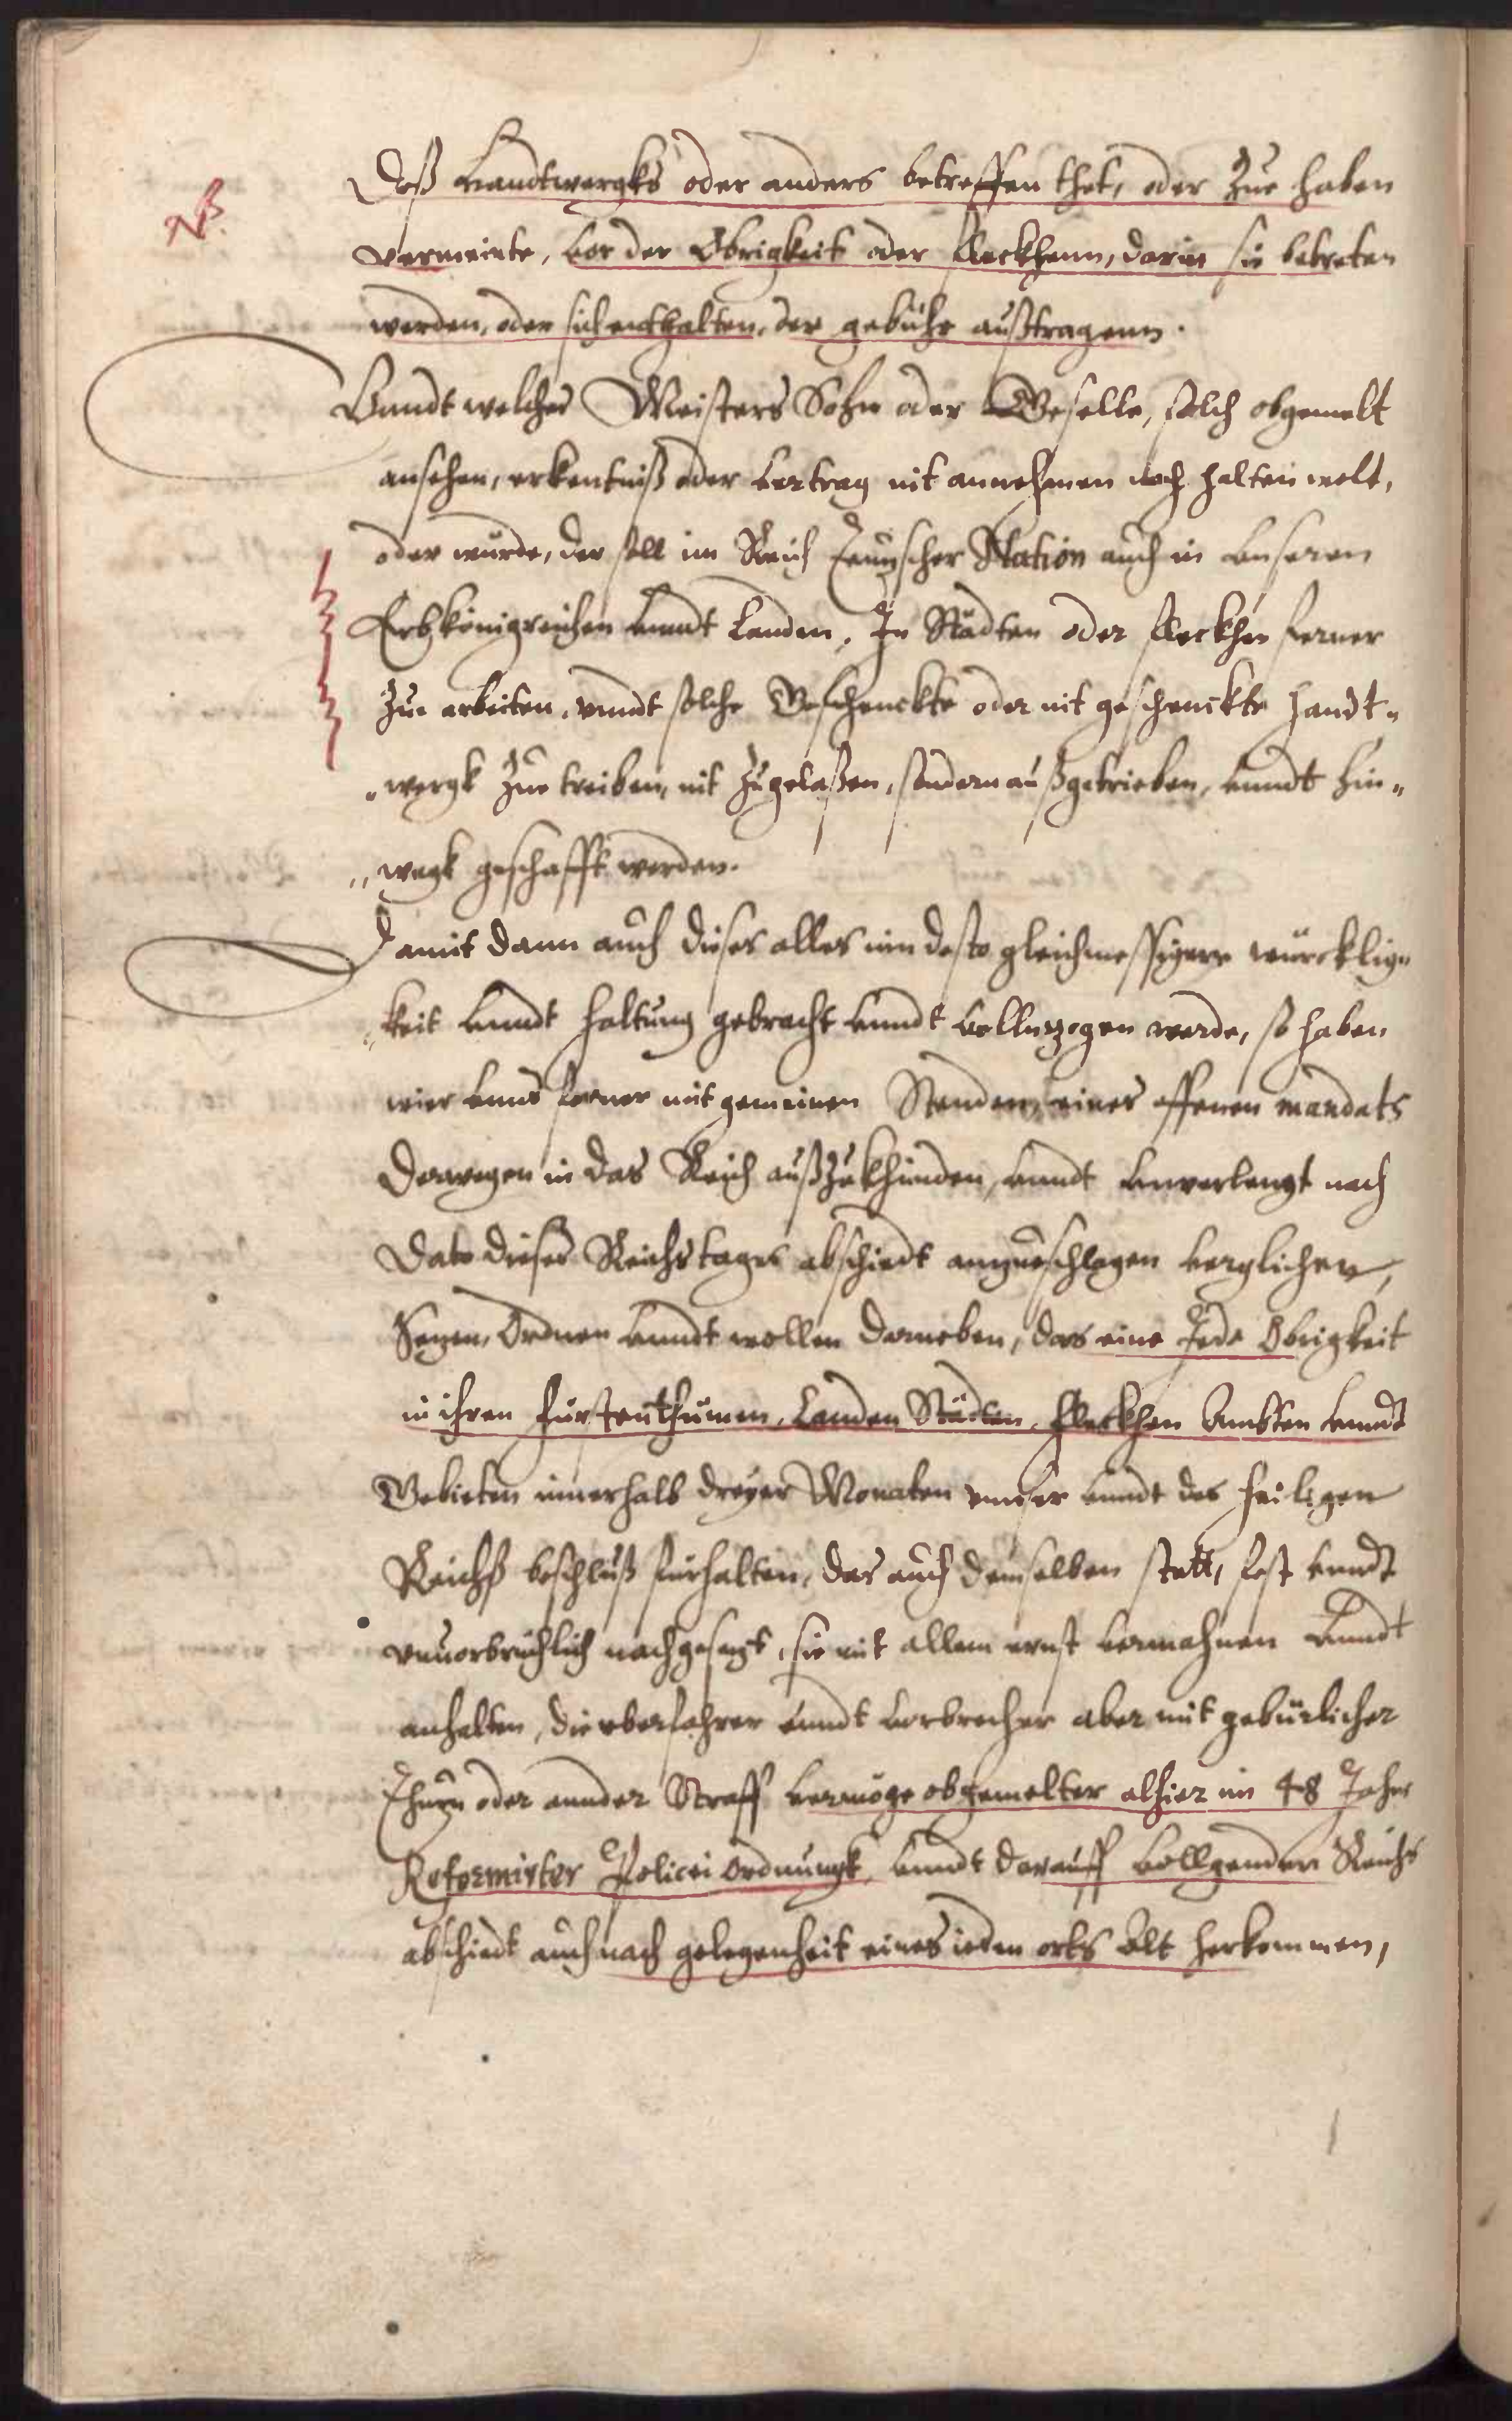 NB.
Daß Handtwergks oder anders betreffen thet, oder Zue haben
vermeinte, vor der Obrigkeit oder fleckhenn, darin sie betreten
werden, oder sich enthalten, der gebühr außtragenn.
Vandt welches Meisters Sohn oder Geselle, solch obgemelt
ansehen, erkentniß oder vertrag nit annehmen noch halten welt,
oder würde, der soll im Reich Teutzscher Nation auch in vnseren
Erbkönigreichen vnndt Landen, In Städten oder fleckhen ferner
Zue arbeiten, vnndt solche Geschenckte oder nit geschenckte Handt„
„wergk Zue treiben, nit Zugelaßen, sondern außgetrieben, vnndt hin„
„wegk geschafft werden.
Damit dann auch dieses alles inn desto gleichmessigere würcklig„
„keit vnndt haltung gebracht vnndt vollnzogen werde, so haben
wier vnns ferner mit gemeinen Stenden, eines offenen mandats
Derwegen in das Reich außZukhünden, vnndt vnverlengt nach
Dato dieses Reichstages abschiedt anzueschlagen verglichen,
Setzen, Ordnen vnndt wollen darneben, das eine Jede Obrigkeit
in ihren fürstenthümen, Landen Städten, fleckhen Ambten vnndt
Gebieten innerhalb dreyer Monaten vnser vnndt des heiligen
Reichß beschluß fürhalten, das auch demselben statt, fest vnndt
vnuorbrüchlich nachgesetzt, sie mit allem ernst vermahnen vnndt
anhalten, die vberfahrer vnndt verbrecher aber mit gebürlicher
Thurn oder annder Straff vermöge obgemelter alhier im 48 Jahr
Reformirter Policei ordnungk, vnndt darauff vollgenden Reichs
abschiedt auch nach gelegenheit eines ieden orts Alt herkommen,